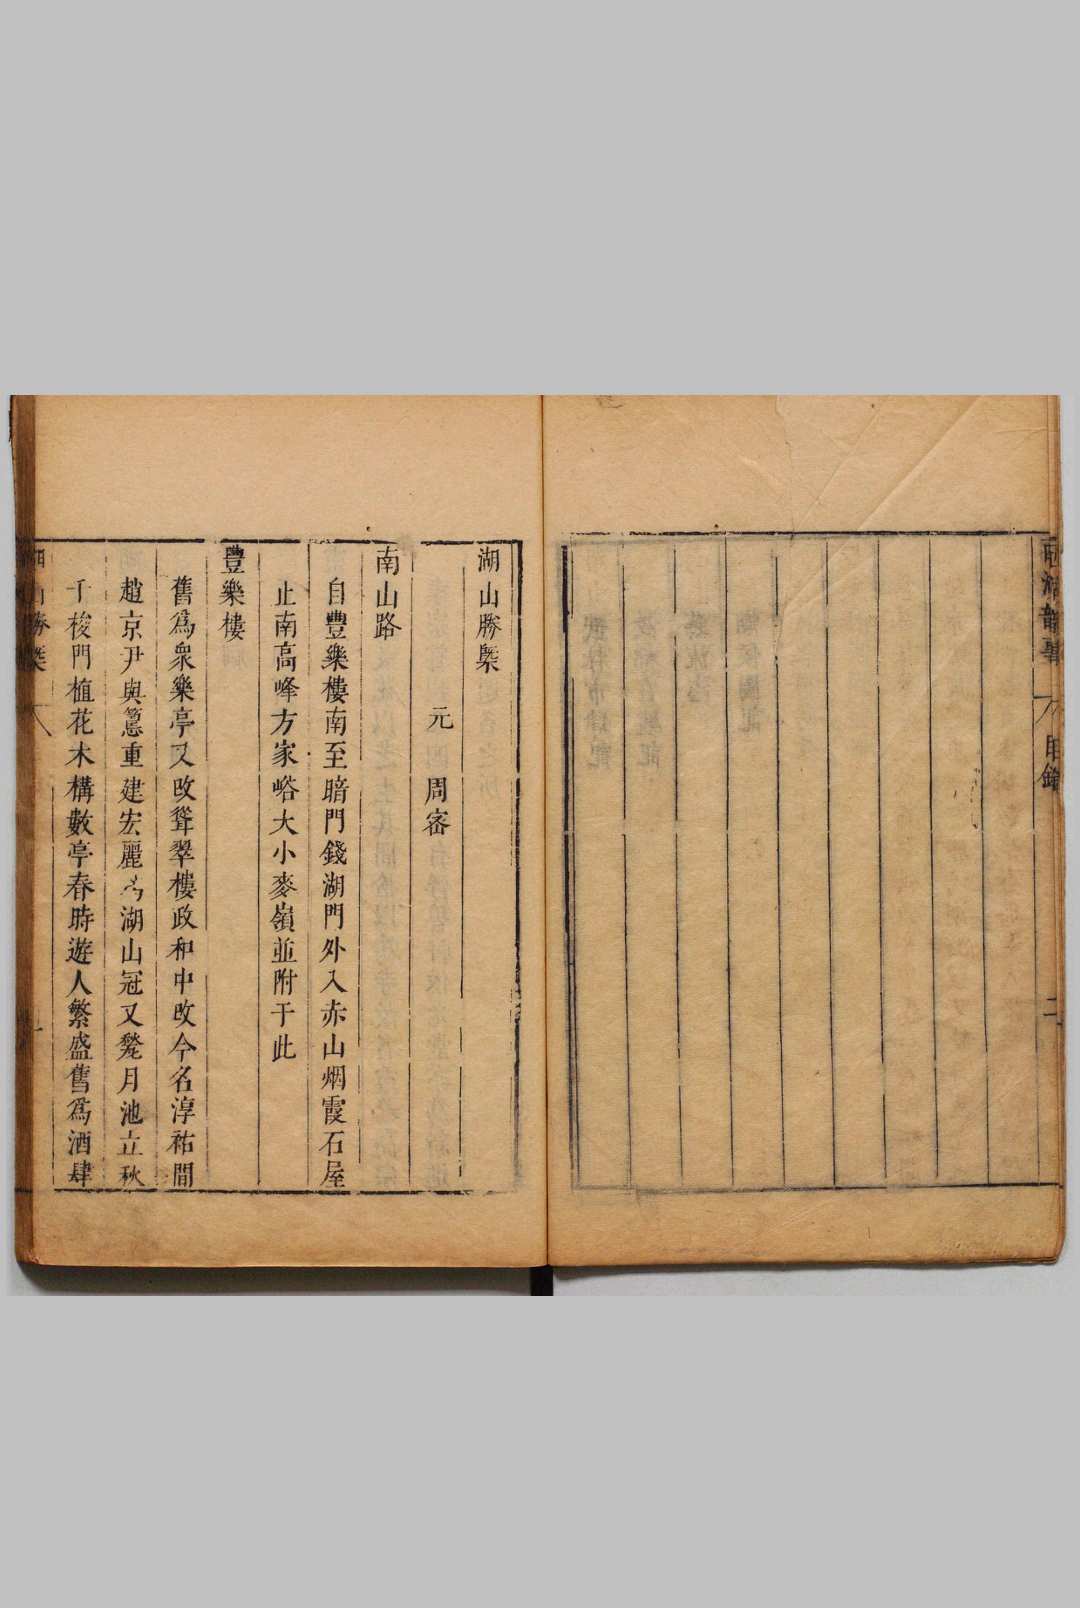 目錄
二
湖山勝槩
元 周密
南山路
自豐樂樓南至暗門錢湖門外入赤山烟霞石屋
止南高峰方家峪大小麥嶺並附于此
豐樂樓
舊爲衆樂亭又改聳翠樓政和中改今名淳祐間
趙京尹與𥲅重建宏麗爲湖山冠又甃月池立秋
千梭門植花木構數亭春時遊人繁盛舊爲酒肆
山勝槩
一